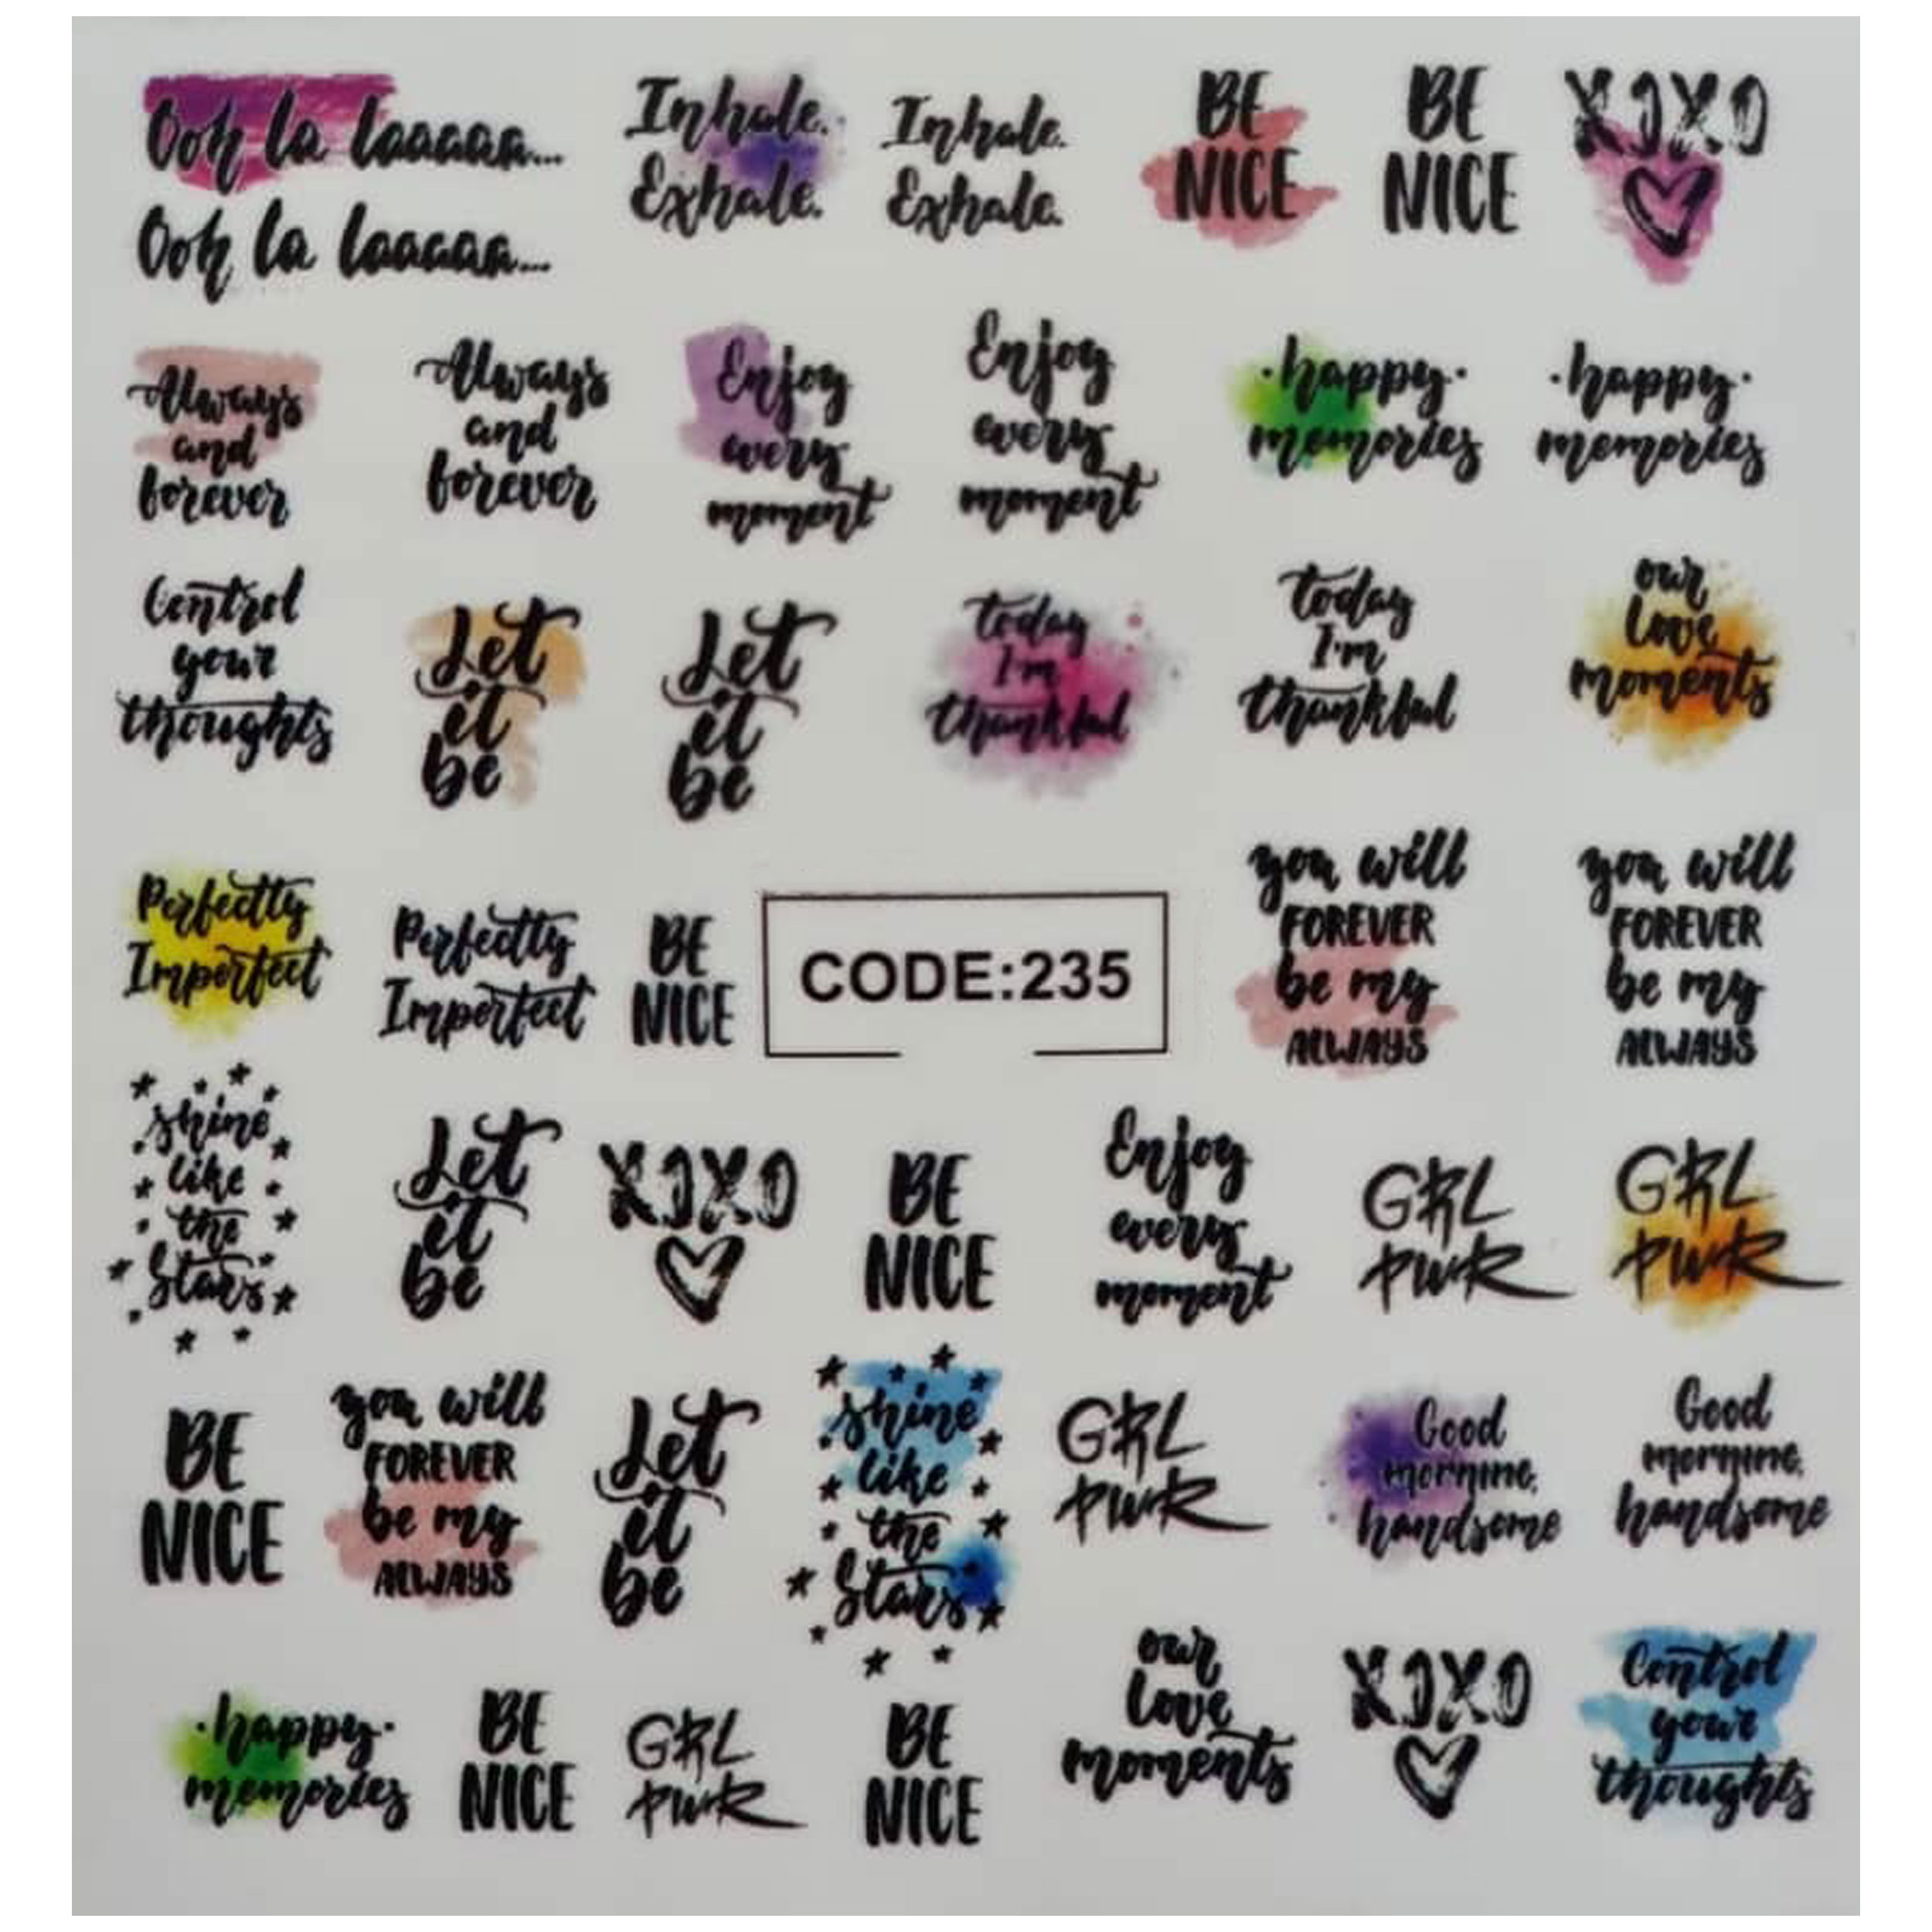 Ooh la laaaaa...
Ooh la laaaaa...
Inhale.
Exhale.
Inhale.
Exhale.
BE
NICE
BE
NICE
XOXO
Always
and
forever
Always
and
forever
Enjoy
every
moment
Enjoy
every
moment
·happy·
memories
·happy·
memories
Control
your
thoughts
Let
it
be
Let
it
be
today
I'm
thankful
today
I'm
thankful
our
love
moments
Perfectly
Imperfect
Perfectly
Imperfect
BE
NICE
CODE:235
you will
FOREVER
be my
ALWAYS
you will
FOREVER
be my
ALWAYS
shine
like
the
Stars
Let
it
be
XOXO
BE
NICE
Enjoy
every
moment
GRL
PWR
GRL
PWR
BE
NICE
you will
FOREVER
be my
ALWAYS
Let
it
be
shine
like
the
Stars
GRL
PWR
Good
morning,
handsome
Good
morning,
handsome
·happy·
memories
BE
NICE
GRL
PWR
BE
NICE
our
love
moments
XOXO
Control
your
thoughts